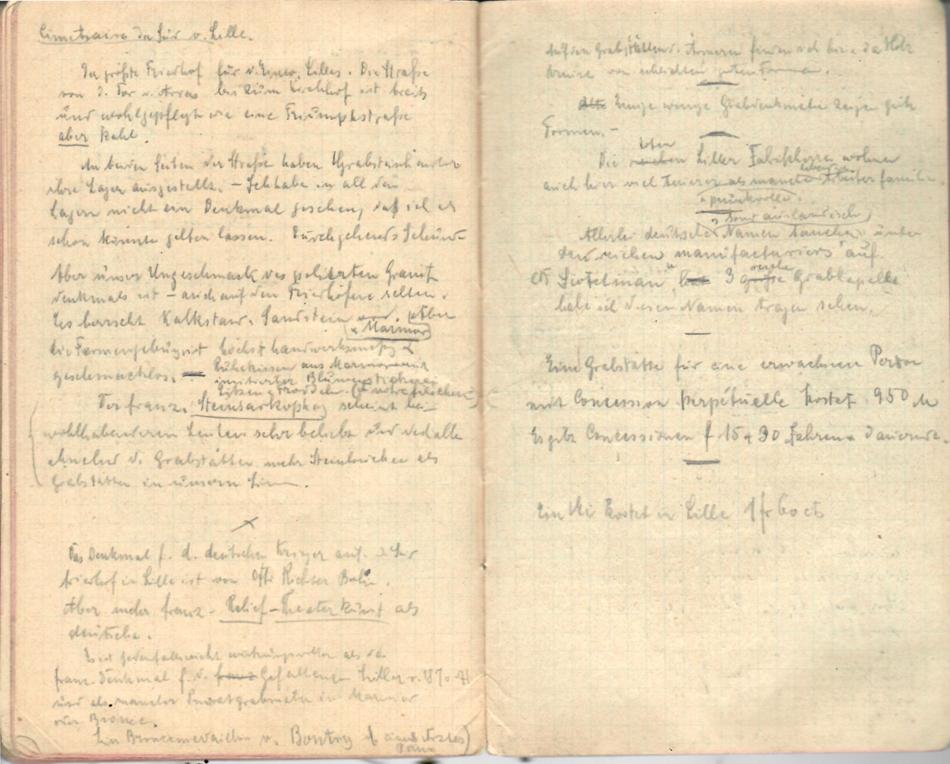 Cimetraire du Sud v. Lille.
Der größte Friedhof für d. Lilles. Die Straße
von d. Tor v. Arras bis zum Kirchhof ist breit
und wohlgepflegt wie eine Triumphstraße
aber kahl.
An beiden Seiten der Straße haben Grabsteinhändler
ihre Lager ausgestellt. – Ich habe in all den
Lagern nicht ein Denkmal gesehen, daß ich als
schön könnte gelten lassen. Durchgehends
Aber unser Ungeschmack des polierten Granit
denkmals ist – auch auf den Friedhöfen selten.
Es herrscht Kalkstein, Sandstein vor. Aber
u Marmor
die Formengebung ist höchst handwerksmäßig u
geschmacklos. — Ruhekissen aus Marmor mit
imitierter Blumenstickerei
Der franz. Steinsarkophag scheint bei
wohlhabenderen Leuten sehr beliebt und
ähneln d. Grabstätten mehr Steinbrüchen als
Grabstätten in unserm Sinn.
Das Denkmal f. d. deutschen Krieger auf d. Süd
friedhof in Lille ist von Richter Berlin.
Aber mehr franz. Relief-Theaterkunst als
deutsche.
Es ist jedenfalls nicht wirkungsvoller als das
franz. Denkmal f. d. franz Gefallenen Lilles v. 1870-71
und als manches Privatgrabmäler in Marmor
oder Bronce.
Ein Broncemedaillon v. Boutry f. eines Arztes
Auf den Grabstätten d. Ärmeren finden sich hie u da Holz
kreuze von schlichten guten Formen.
Einige wenige Grabdenkmäler zeigen gute
Formen. –
toten
Die reichen Liller Fabrikherren wohnen
auch hier viel teurer als manche Arbeiterfamilie
lebende
u prunkvoller.
u sonst ausländische
Allerlei deutsche Namen tauchen unter
den reichen "manufacturiers" auf.
3 große Grabkapelle
habe ich diesen Namen tragen sehen.
Eine Grabstätte für eine erwachsene Person
mit Concession perpétuelle kostet 950 M
Es gibt Concessionen f. 15 u 30 Jahren u dauernde.
Ein Ei kostet in Lille 1 fr 60 cts